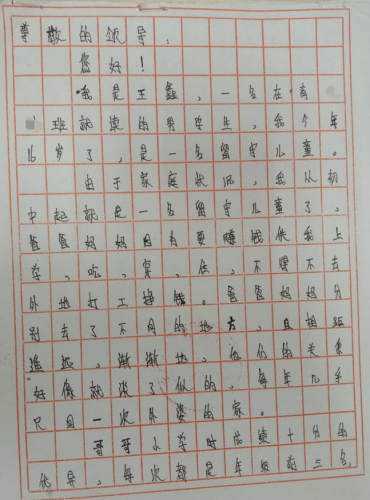 尊敬的领导：
您好！
我是王鑫，一名在高
班就读的男学生，我今年
16岁了，是一名留守儿童。
由于家庭状况，我从初
中起就是一名留守儿童了。
爸爸妈妈因为要赚钱供我上
学、吃、穿、住，不得不去
外地打工挣钱。爸爸妈妈分
别去了不同的地方，且相距
遥远，渐渐地，他们的关系
好像就淡了似的，每年几乎
只回一次外婆的家。
哥哥小学时成绩十分的
优异，每次都是年级前三名，